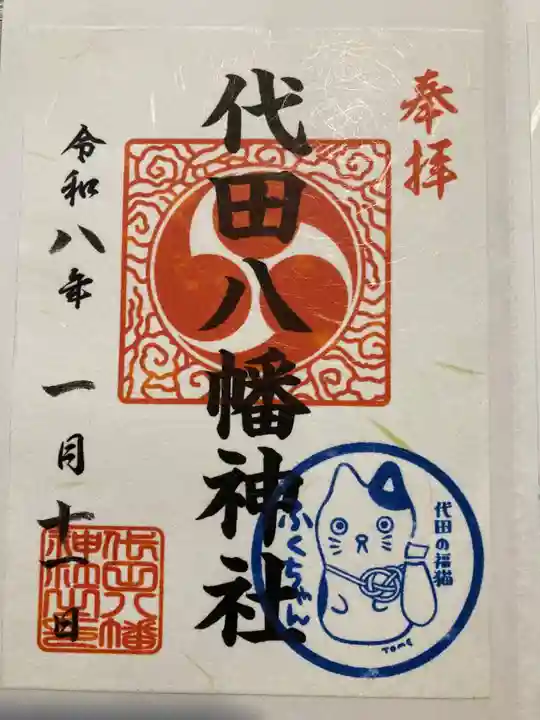 奉拝
代田八幡神社
令和八年 一月十一日
代田八幡神社之印
代田の福猫
ふくちゃん
TOME